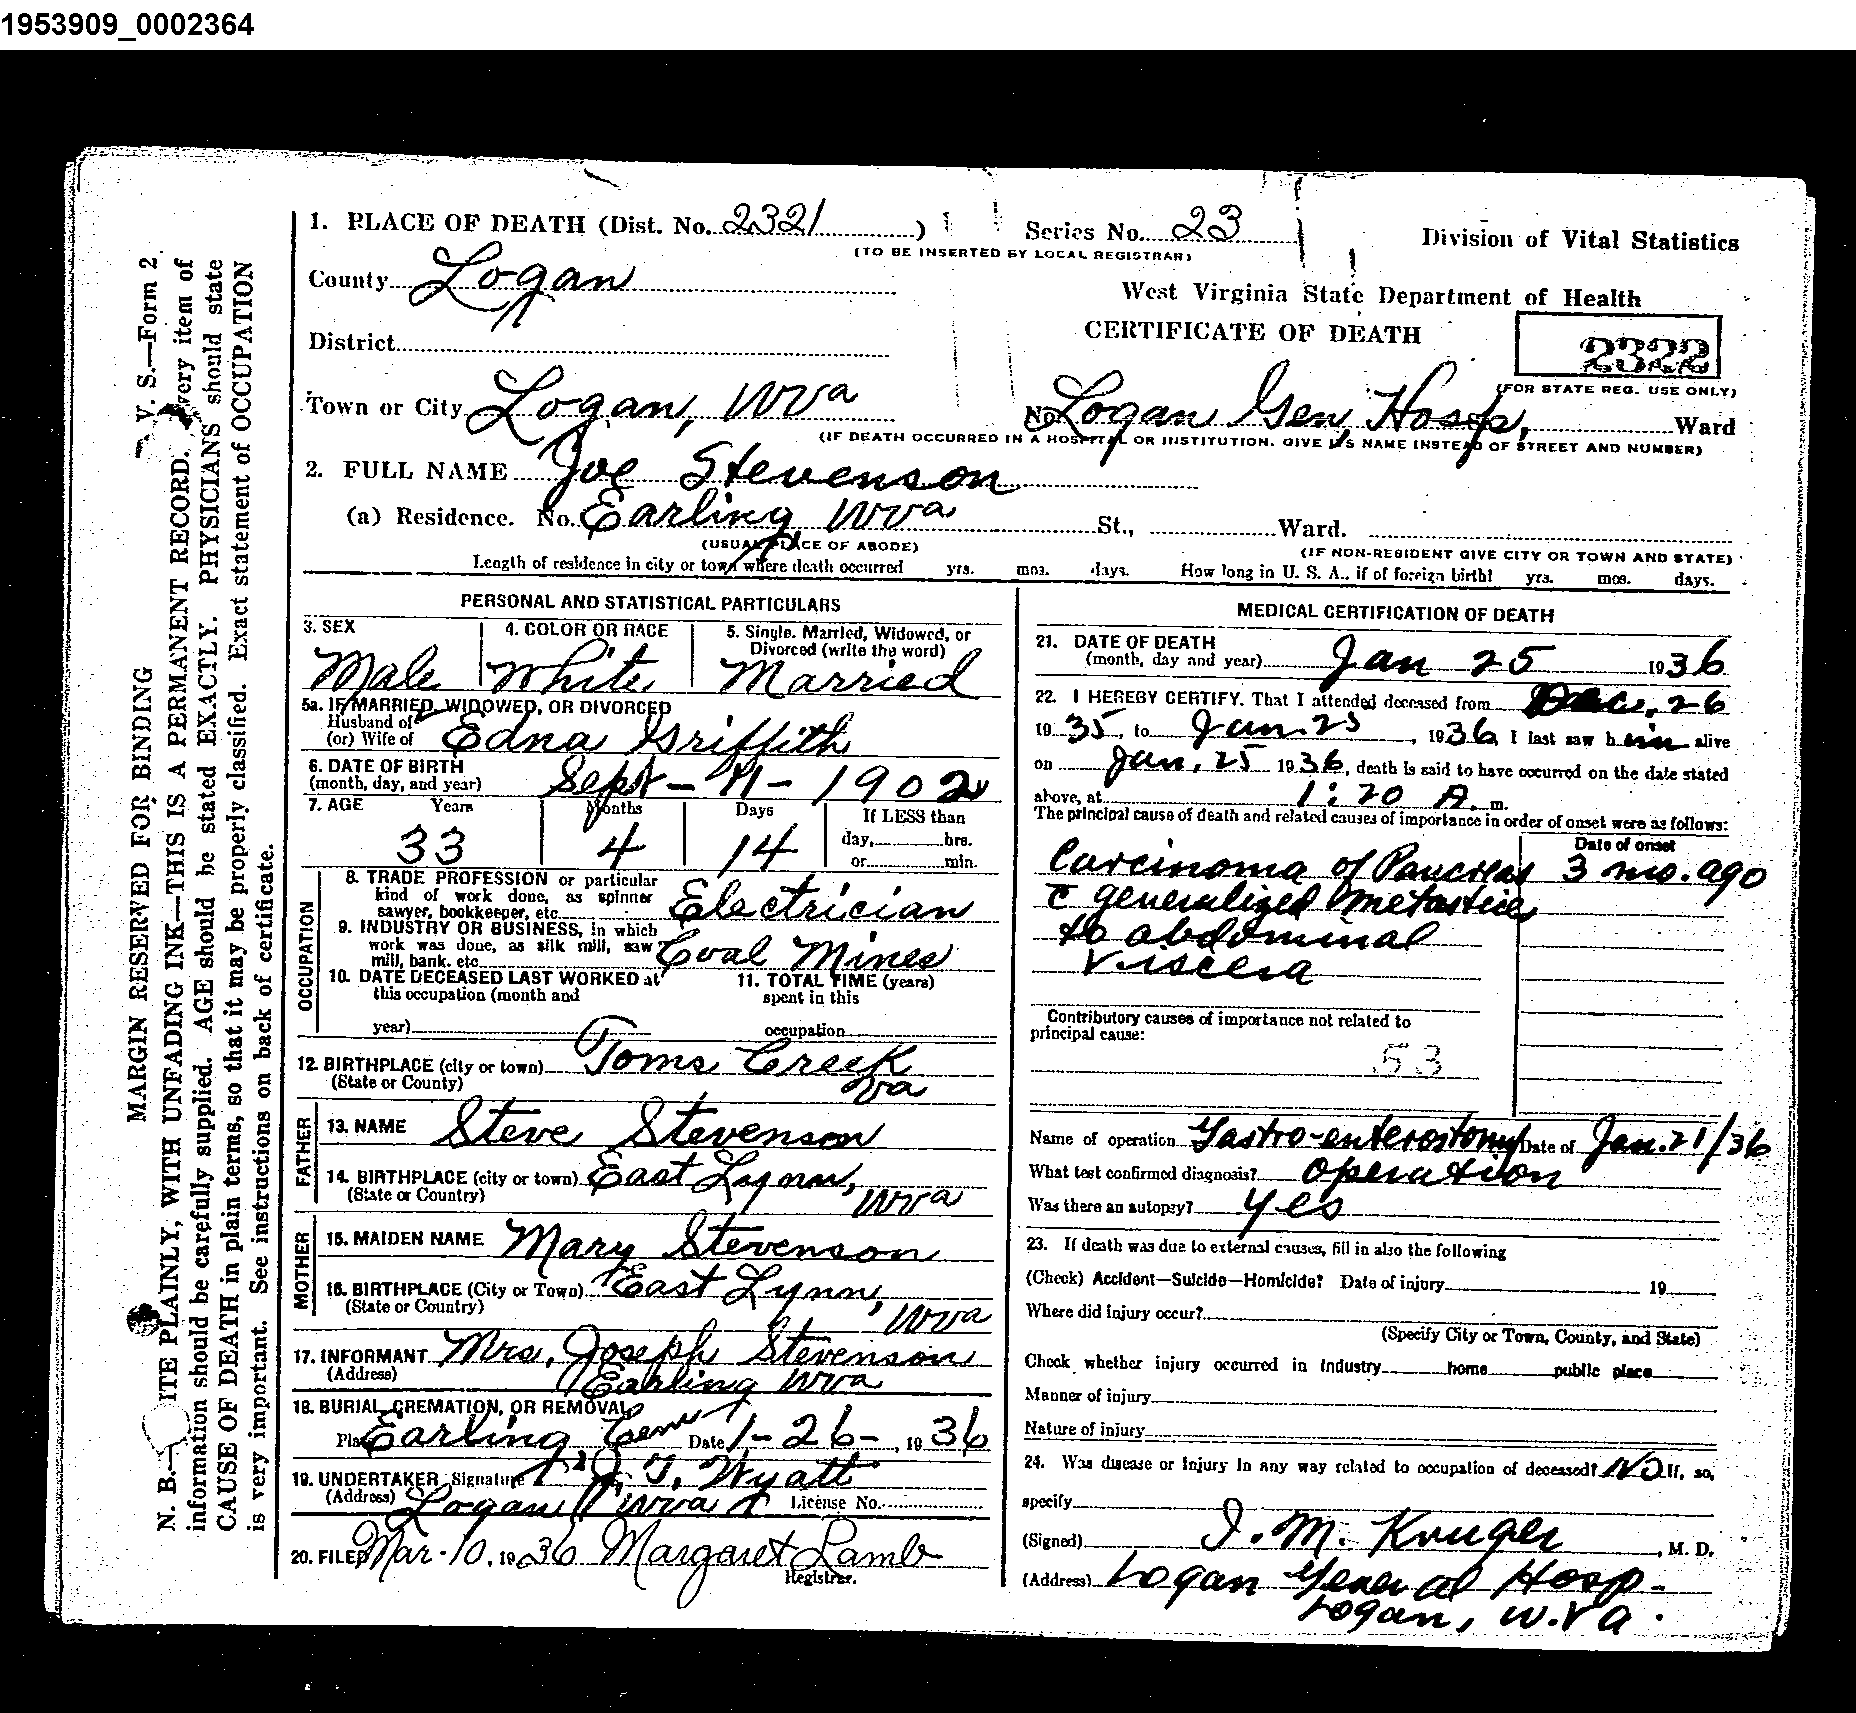 1953909_0002364
1. PLACE OF DEATH (Dist. No. 2321 ) Series No. 23 Division of Vital Statistics
(TO BE INSERTED BY LOCAL REGISTRAR)
County Logan
West Virginia State Department of Health
CERTIFICATE OF DEATH
District
2322
(FOR STATE REG. USE ONLY)
Town or City Logan, WVa No. Logan Gen, Hosp, Ward
(IF DEATH OCCURRED IN A HOSPITAL OR INSTITUTION. GIVE ITS NAME INSTEAD OF STREET AND NUMBER)
2. FULL NAME Joe Stevenson
(a) Residence. No. Earling WVa St., Ward.
(USUAL PLACE OF ABODE) (IF NON-RESIDENT GIVE CITY OR TOWN AND STATE)
Length of residence in city or town where death occurred yrs. mos. days. How long in U. S. A., if of foreign birth? yrs. mos. days.
PERSONAL AND STATISTICAL PARTICULARS
3. SEX 4. COLOR OR RACE 5. Single. Married, Widowed, or
Divorced (write the word)
Male White Married
5a. IF MARRIED, WIDOWED, OR DIVORCED
Husband of
(or) Wife of Edna Griffith
6. DATE OF BIRTH
(month, day, and year) Sept - 11 - 1902
7. AGE Years Months Days If LESS than
33 4 14 day, hrs.
or min.
OCCUPATION
8. TRADE PROFESSION or particular
kind of work done, as spinner
sawyer, bookkeeper, etc. Electrician
9. INDUSTRY OR BUSINESS, in which
work was done, as silk mill, saw
mill, bank. etc. Coal Mines
10. DATE DECEASED LAST WORKED at 11. TOTAL TIME (years)
this occupation (month and spent in this
year) occupation
12. BIRTHPLACE (city or town) Toms Creek
(State or County) Va
FATHER
13. NAME Steve Stevenson
14. BIRTHPLACE (city or town) East Lynn,
(State or Country) WVa
MOTHER
15. MAIDEN NAME Mary Stevenson
16. BIRTHPLACE (City or Town) East Lynn,
(State or Country) WVa
17. INFORMANT Mrs. Joseph Stevenson
(Address) Earling WVa
18. BURIAL, CREMATION, OR REMOVAL
Place Earling Cem Date 1-26-, 1936
19. UNDERTAKER Signature J. T. Wyatt
(Address) Logan WVa License No.
20. FILED Mar-10, 1936 Margaret Lamb
Registrar.
MEDICAL CERTIFICATION OF DEATH
21. DATE OF DEATH
(month, day and year) Jan 25 1936
22. I HEREBY CERTIFY. That I attended deceased from Dec. 26
1935, to Jan. 25, 1936, I last saw him alive
on Jan. 25 1936, death is said to have occurred on the date stated
above, at 1:20 A. m.
The principal cause of death and related causes of importance in order of onset were as follows:
Date of onset
Carcinoma of Pancreas 3 mo. ago
c̄ generalized metastices
to abdominal
viscera
Contributory causes of importance not related to
principal cause:
53
Name of operation Gastro-enterostomy Date of Jan. 21/36
What test confirmed diagnosis? Operation
Was there an autopsy? Yes
23. If death was due to external causes, fill in also the following
(Check) Accident—Suicide—Homicide? Date of injury 19
Where did injury occur?
(Specify City or Town, County, and State)
Check whether injury occurred in industry home public place
Manner of injury
Nature of injury
24. Was disease or injury in any way related to occupation of deceased? No If, so,
specify
(Signed) I. M. Kruger, M. D.
(Address) Logan General Hosp.
Logan, W.Va.
V. S.—Form 2
MARGIN RESERVED FOR BINDING
N. B.— ITE PLAINLY, WITH UNFADING INK—THIS IS A PERMANENT RECORD. Every item of
information should be carefully supplied. AGE should be stated EXACTLY. PHYSICIANS should state
CAUSE OF DEATH in plain terms, so that it may be properly classified. Exact statement of OCCUPATION
is very important. See instructions on back of certificate.